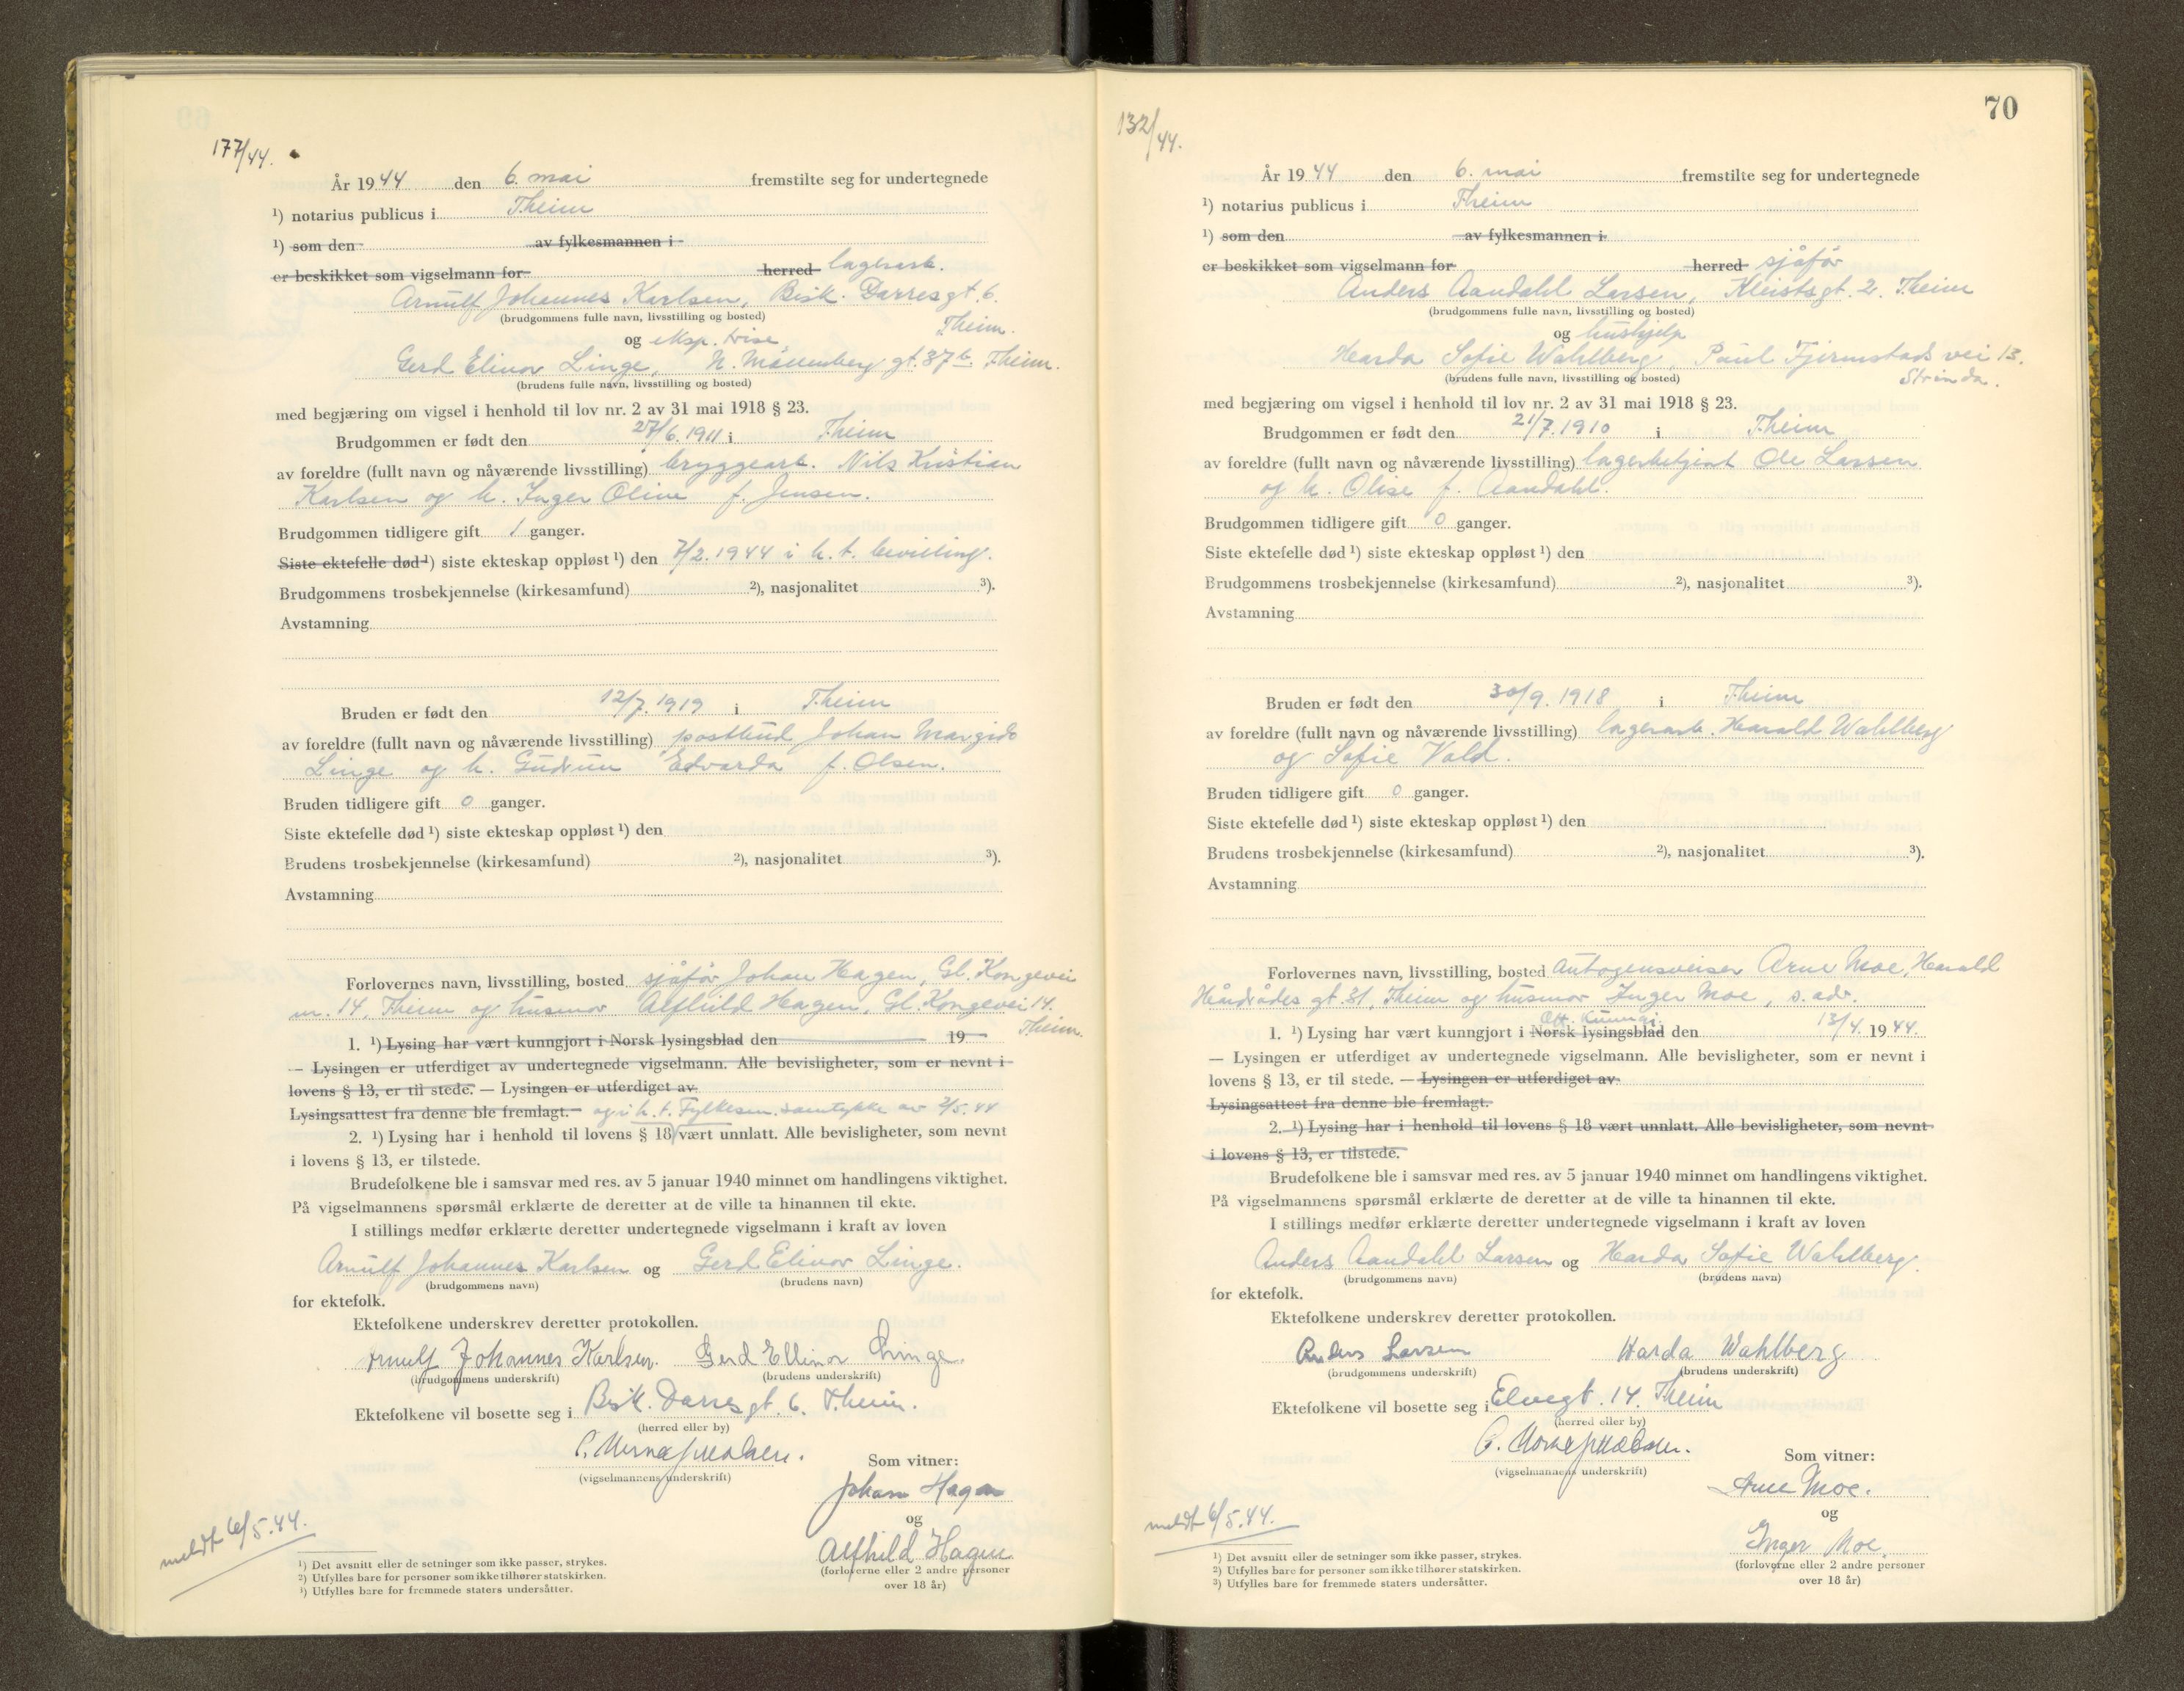 177/44.
År 1944 den 6. mai fremstilte seg for undertegnede
¹) notarius publicus i T.heim
¹) som den av fylkesmannen i
er beskikket som vigselmann for herred lagerarb.
Arnulf Johannes Karlsen, Bisk. Darresgt. 6.
(brudgommens fulle navn, livsstilling og bosted) T.heim.
og eksp. trise
Gerd Elinor Linge, N. Møllenberg gt. 37b. T.heim.
(brudens fulle navn, livsstilling og bosted)
med begjæring om vigsel i henhold til lov nr. 2 av 31 mai 1918 § 23.
Brudgommen er født den 27/6. 1911 i T.heim
av foreldre (fullt navn og nåværende livsstilling) bryggearb. Nils Kristian
Karlsen og h. Inger Oline f. Jensen.
Brudgommen tidligere gift 1 ganger.
Siste ektefelle død ¹) siste ekteskap oppløst ¹) den 7/2. 1944 i h. t. bevilling.
Brudgommens trosbekjennelse (kirkesamfund) ²), nasjonalitet ³).
Avstamning
Bruden er født den 12/7. 1919 i T.heim
av foreldre (fullt navn og nåværende livsstilling) postbud Johan Margido
Linge og h. Gudrun Edvarda f. Olsen.
Bruden tidligere gift 0 ganger.
Siste ektefelle død ¹) siste ekteskap oppløst ¹) den
Brudens trosbekjennelse (kirkesamfund) ²), nasjonalitet ³).
Avstamning
Forlovernes navn, livsstilling, bosted sjåfør Johan Hagen, Gl. Kongevei
nr. 14, T.heim og husmor Alfhild Hagen, Gl. Kongevei 14.
T.heim.
1. ¹) Lysing har vært kunngjort i Norsk lysingsblad den 19
— Lysingen er utferdiget av undertegnede vigselmann. Alle bevisligheter, som er nevnt i
lovens § 13, er til stede. — Lysingen er utferdiget av
Lysingsattest fra denne ble fremlagt. — og i h. t. Fylkesm. samtykke av 2/5. 44
2. ¹) Lysing har i henhold til lovens § 18 vært unnlatt. Alle bevisligheter, som nevnt
i lovens § 13, er tilstede.
Brudefolkene ble i samsvar med res. av 5 januar 1940 minnet om handlingens viktighet.
På vigselmannens spørsmål erklærte de deretter at de ville ta hinannen til ekte.
I stillings medfør erklærte deretter undertegnede vigselmann i kraft av loven
Arnulf Johannes Karlsen og Gerd Elinor Linge.
(brudgommens navn) (brudens navn)
for ektefolk.
Ektefolkene underskrev deretter protokollen.
Arnulf Johannes Karlsen. Gerd Ellinor Linge.
(brudgommens underskrift) (brudens underskrift)
Ektefolkene vil bosette seg i Bisk. Darresgt. 6. T.heim.
(herred eller by)
(vigselmannens underskrift)
Som vitner:
Johan Hagen
og
Alfhild Hagen
(forloverne eller 2 andre personer
over 18 år)
meldt 6/5. 44.
¹) Det avsnitt eller de setninger som ikke passer, strykes.
²) Utfylles bare for personer som ikke tilhører statskirken.
³) Utfylles bare for fremmede staters undersåtter.
70
132/44.
År 1944 den 6. mai fremstilte seg for undertegnede
¹) notarius publicus i T.heim
¹) som den av fylkesmannen i
er beskikket som vigselmann for herred sjåfør
Anders Aandahl Larsen, Kleistsgt. 2. T.heim
(brudgommens fulle navn, livsstilling og bosted)
og hushjelp
Harda Sofie Wahlberg, Paul Fjermstads vei 13.
(brudens fulle navn, livsstilling og bosted) Strinda.
med begjæring om vigsel i henhold til lov nr. 2 av 31 mai 1918 § 23.
Brudgommen er født den 21/7. 1910 i T.heim
av foreldre (fullt navn og nåværende livsstilling) lagerbetjent Ole Larsen
og h. Olise f. Aandahl.
Brudgommen tidligere gift 0 ganger.
Siste ektefelle død ¹) siste ekteskap oppløst ¹) den
Brudgommens trosbekjennelse (kirkesamfund) ²), nasjonalitet ³).
Avstamning
Bruden er født den 30/9. 1918 i T.heim
av foreldre (fullt navn og nåværende livsstilling) lagerarb. Harald Wahlberg
og Sofie Vold.
Bruden tidligere gift 0 ganger.
Siste ektefelle død ¹) siste ekteskap oppløst ¹) den
Brudens trosbekjennelse (kirkesamfund) ²), nasjonalitet ³).
Avstamning
Forlovernes navn, livsstilling, bosted Autogensveiser Arne Moe, Harald
Hårdrådes gt. 31, T.heim og husmor Inger Moe, s. adr.
Off. kunngj.
1. ¹) Lysing har vært kunngjort i Norsk lysingsblad den 13/4. 1944.
— Lysingen er utferdiget av undertegnede vigselmann. Alle bevisligheter, som er nevnt i
lovens § 13, er til stede. — Lysingen er utferdiget av
Lysingsattest fra denne ble fremlagt.
2. ¹) Lysing har i henhold til lovens § 18 vært unnlatt. Alle bevisligheter, som nevnt
i lovens § 13, er tilstede.
Brudefolkene ble i samsvar med res. av 5 januar 1940 minnet om handlingens viktighet.
På vigselmannens spørsmål erklærte de deretter at de ville ta hinannen til ekte.
I stillings medfør erklærte deretter undertegnede vigselmann i kraft av loven
Anders Aandahl Larsen og Harda Sofie Wahlberg.
(brudgommens navn) (brudens navn)
for ektefolk.
Ektefolkene underskrev deretter protokollen.
Anders Larsen Harda Wahlberg
(brudgommens underskrift) (brudens underskrift)
Ektefolkene vil bosette seg i Elvegt. 14. T.heim
(herred eller by)
(vigselmannens underskrift)
Som vitner:
Arne Moe.
og
Inger Moe.
(forloverne eller 2 andre personer
over 18 år)
meldt 6/5. 44.
¹) Det avsnitt eller de setninger som ikke passer, strykes.
²) Utfylles bare for personer som ikke tilhører statskirken.
³) Utfylles bare for fremmede staters undersåtter.